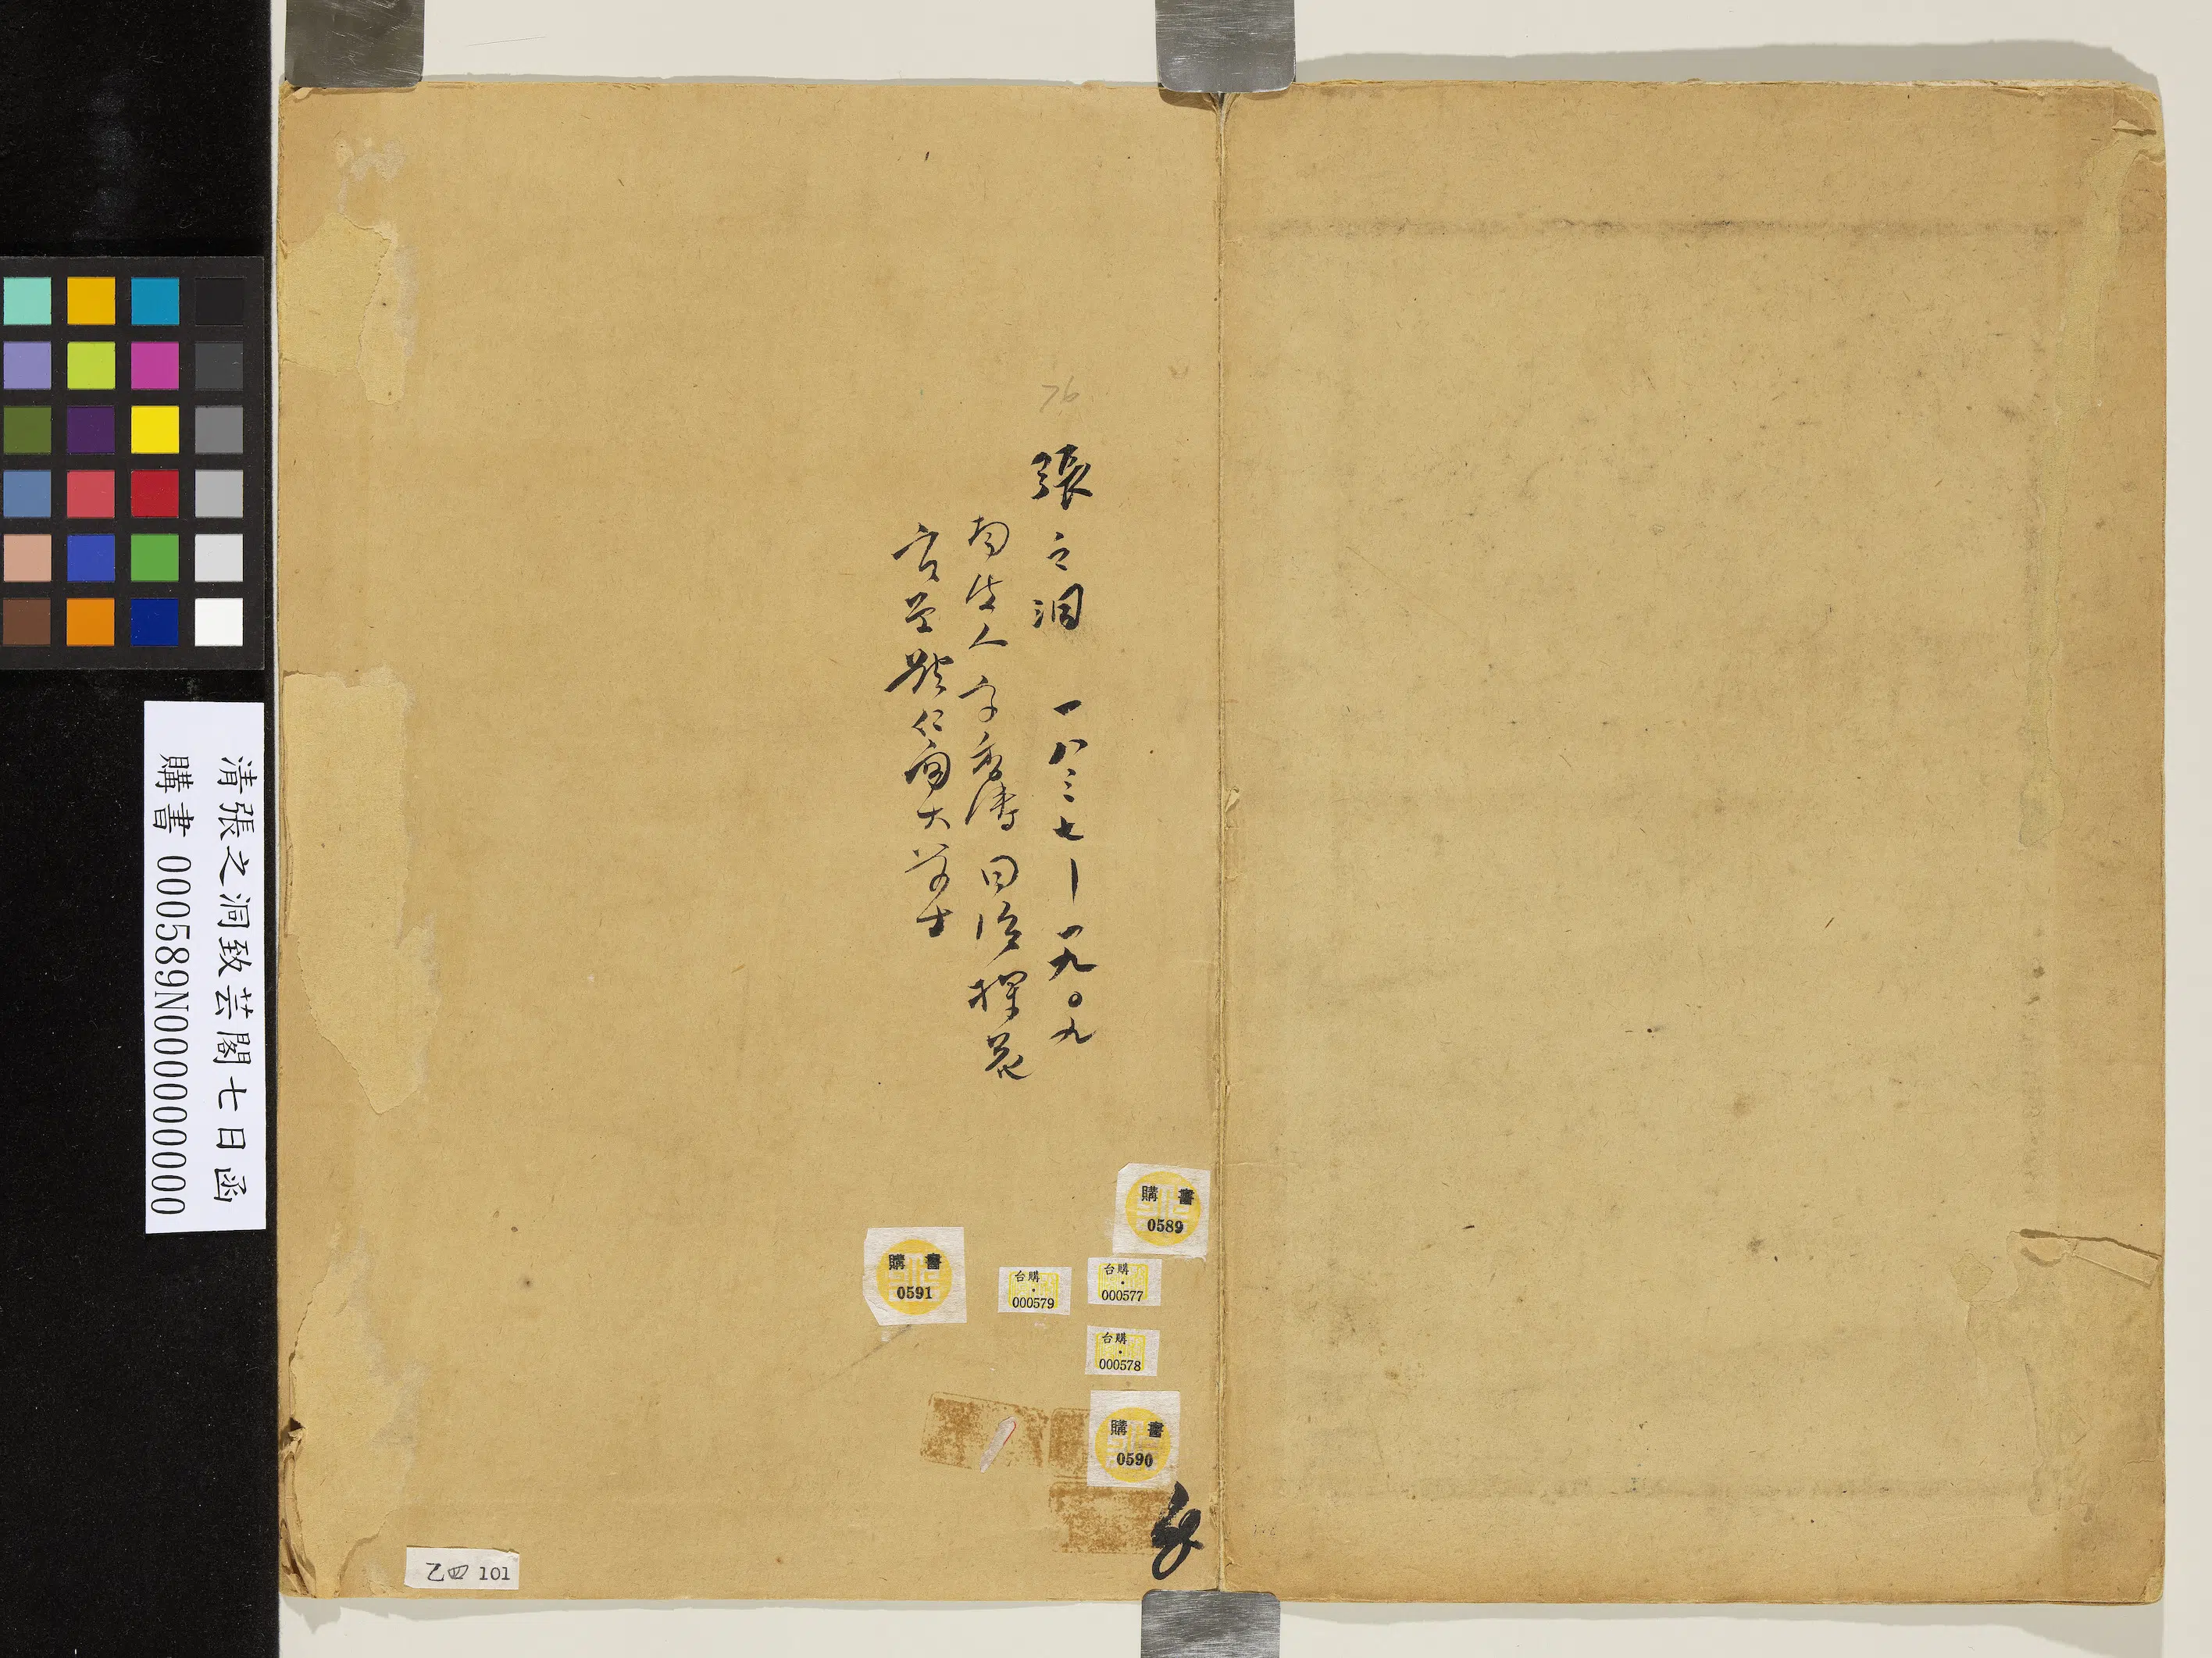 76
張之洞 一八三七—一九〇九
南皮人字香濤同治探花
官至體仁閣大學士
購書
0589
購書
0591
台購
000579
台購
000577
台購
000578
購書
0590
乙四 101
清張之洞致芸閣七日函
購書 000589N000000000